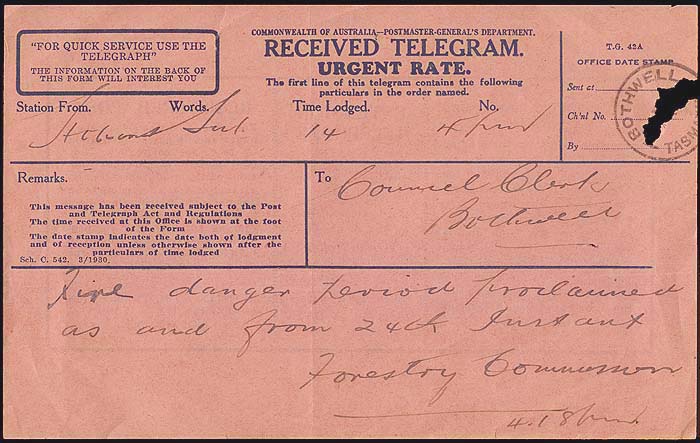 "FOR QUICK SERVICE USE THE
TELEGRAPH"
THE INFORMATION ON THE BACK OF
THIS FORM WILL INTEREST YOU
COMMONWEALTH OF AUSTRALIA—POSTMASTER-GENERAL'S DEPARTMENT.
RECEIVED TELEGRAM.
URGENT RATE.
The first line of this telegram contains the following
particulars in the order named.
T.G. 42A
OFFICE DATE STAMP
Sent at
Ch'nl No.
By
BOTHWELL
TASM
Station From. Words. Time Lodged. No.
14 4 pm
Remarks.
This message has been received subject to the Post
and Telegraph Act and Regulations
The time received at this Office is shown at the foot
of the Form
The date stamp indicates the date both of lodgment
and of reception unless otherwise shown after the
particulars of time lodged
Sch. C. 542. 3/1930.
To Council Clerk
Bothwell
Fire danger period proclaimed
as and from 24th Instant
Forestry Commission
4.18 pm